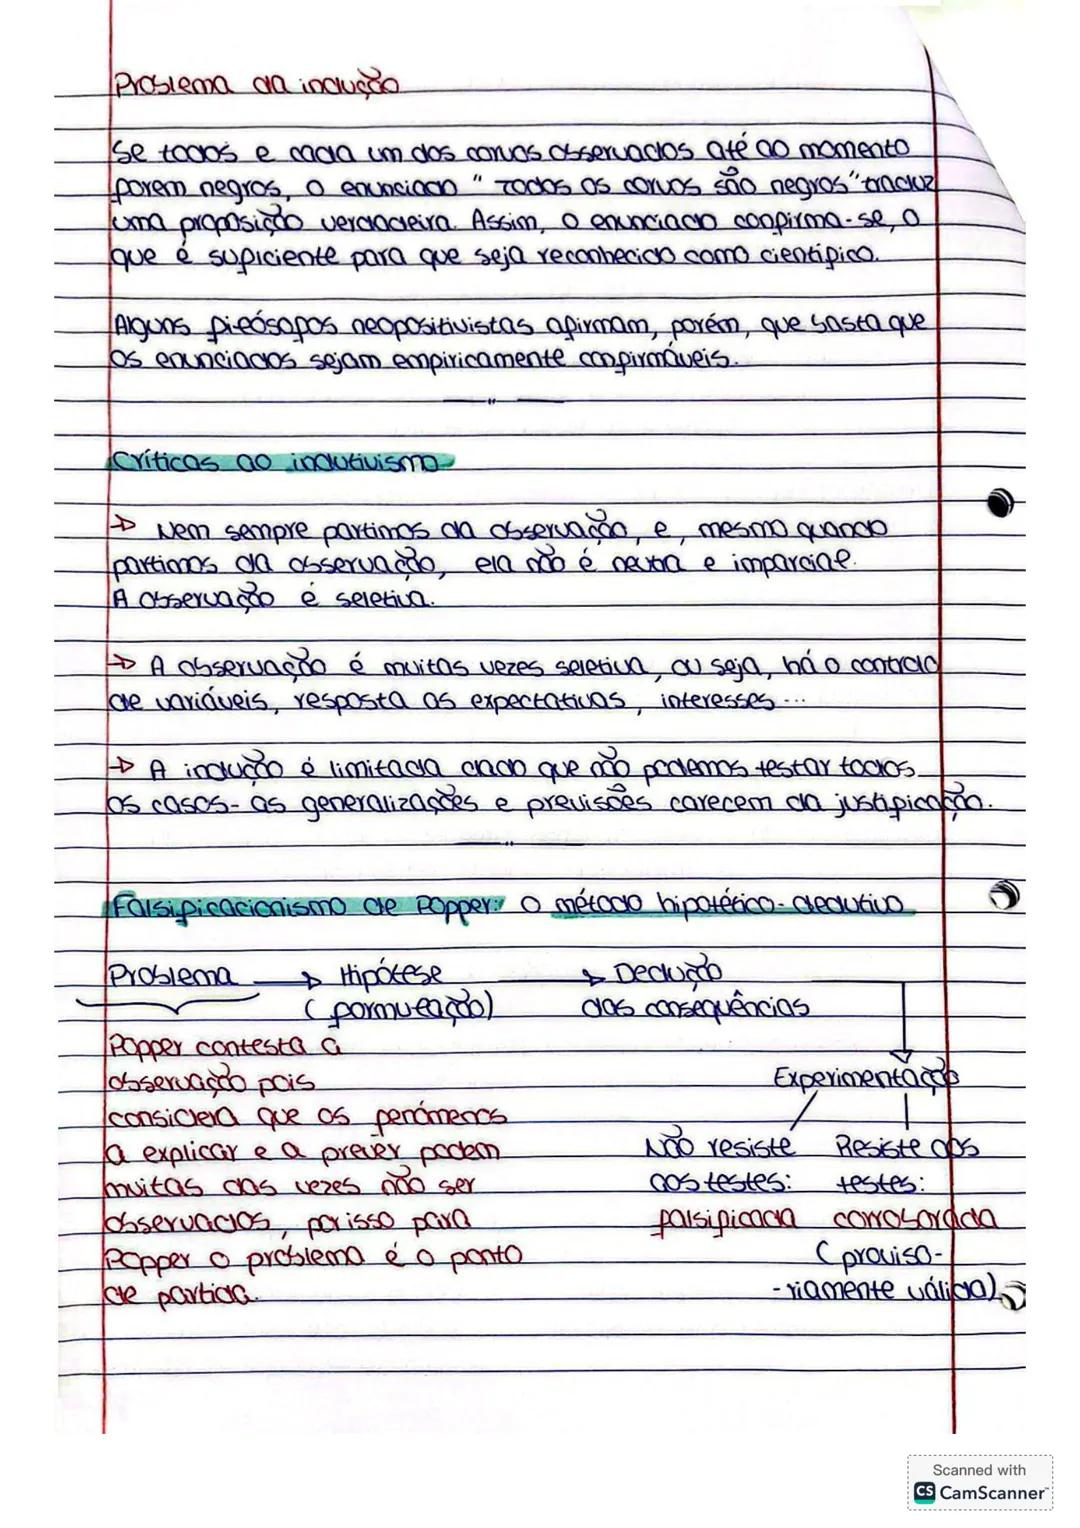 Problema da indução
Se todos e cada um dos corvos observados até ao momento
forem negros, o enunciado "Todos os corvos são negros" traduz
uma proposição verdadeira. Assim, o enunciado confirma-se, o
que é suficiente para que seja reconhecido como científico.
Alguns filósofos neopositivistas afirmam, porém, que basta que
os enunciados sejam empiricamente confirmáveis.
Críticas ao indutivismo
→ Nem sempre partimos da observação, e, mesmo quando
partimos da observação, ela não é neutra e imparcial.
A observação é seletiva.
→ A observação é muitas vezes seletiva, ou seja, há o controlo
de variáveis, resposta as expectativas, interesses...
→ A indução é limitada dado que não podemos testar todos
os casos- as generalizações e previsões carecem da justificação.
Falsificacionismo de Popper: o método hipotético-dedutivo
Problema → Hipótese → Dedução
(formulação) das consequências
Popper contesta a
observação pois
Experimentação
considera que os fenómenos
a explicar e a prever podem
Não resiste Resiste aos
muitas das vezes não ser
aos testes: testes:
observados, por isso para
falsificada corroborada
Popper o problema é o ponto
(proviso-
de partida.
-riamente válida)
Scanned with
CS CamScanner